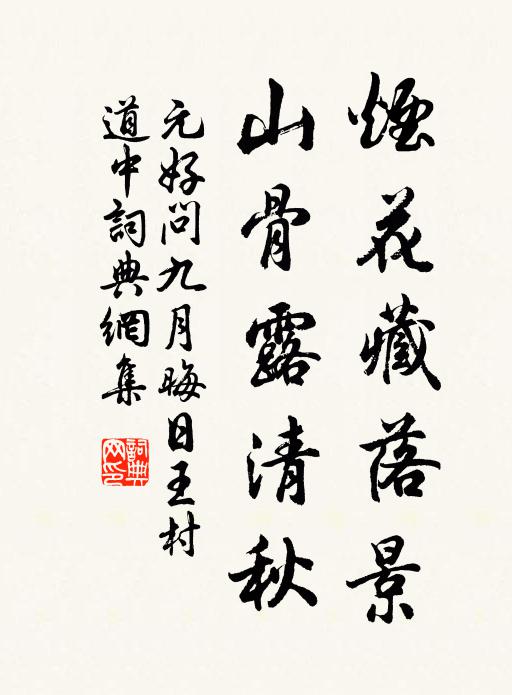 煙花藏落景
山骨露清秋
元好問九月晦日王村
道中詞典網集
詞典網印